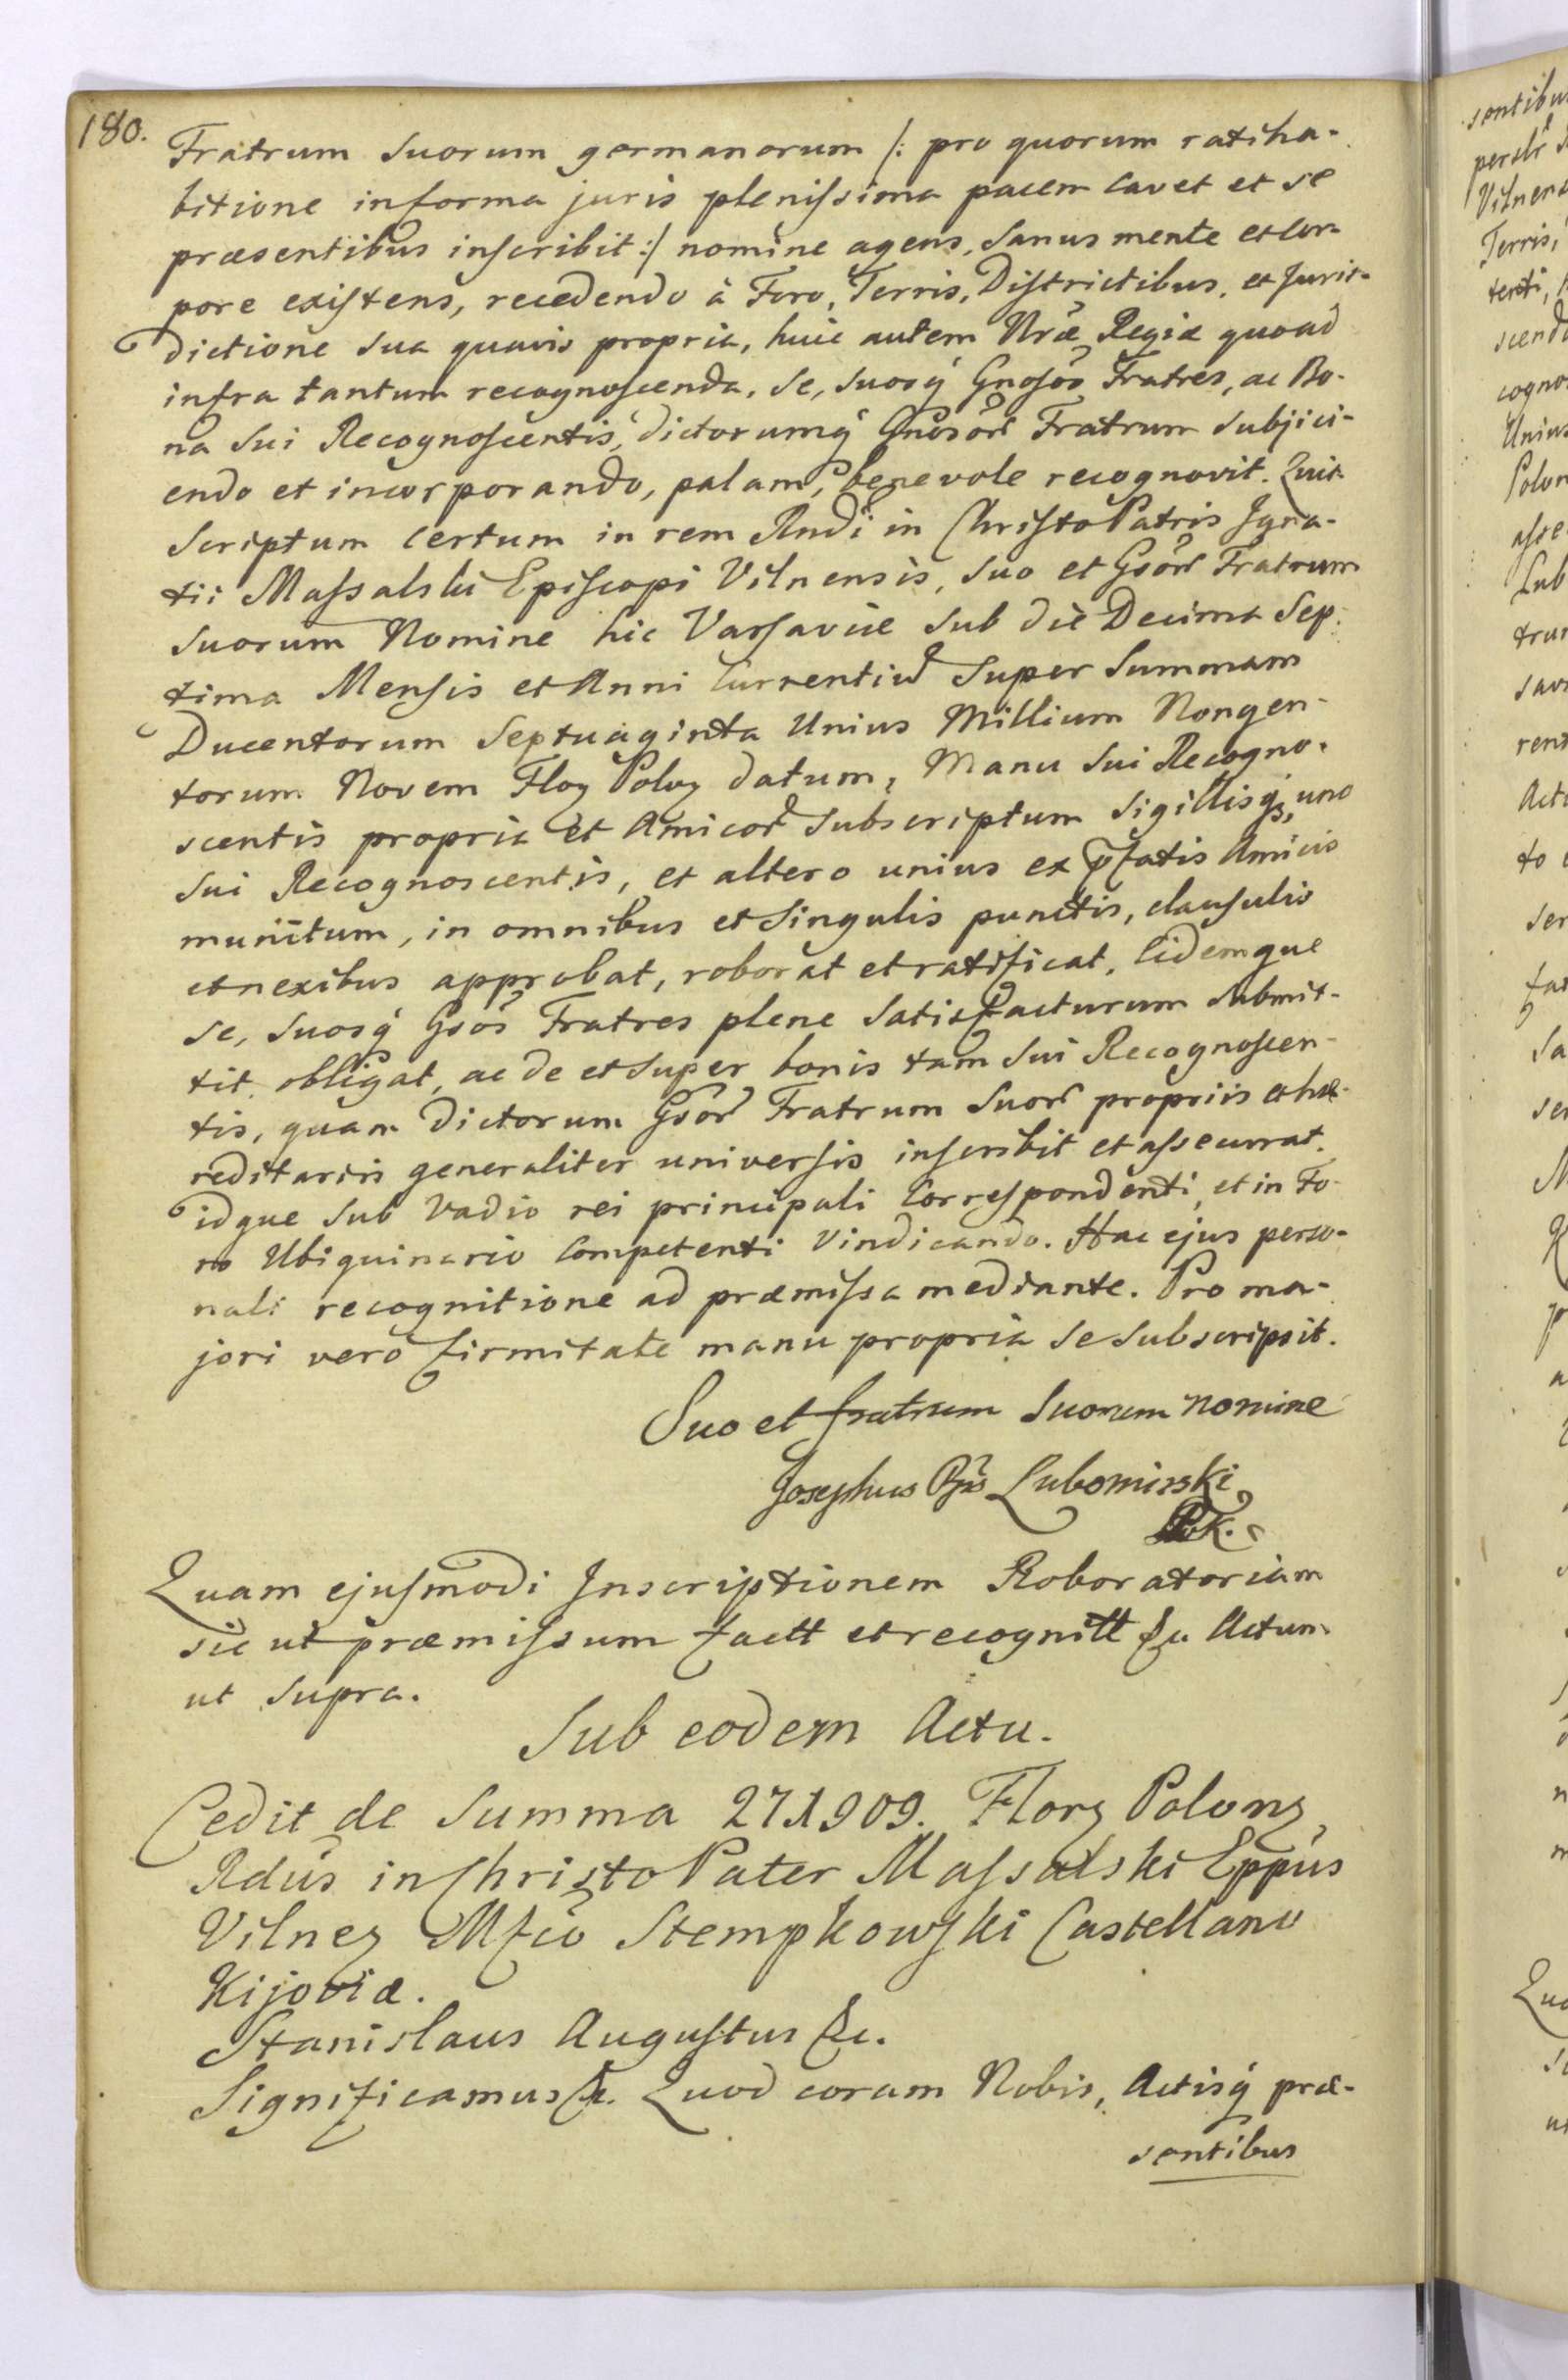 180.
Fratrum Suorum germanorum /: pro quorum ratiha-
bitione in forma juris plenissima pacem cavet et se
præsentibus inscribit :/ nomine agens, Sanus mente et cor-
pore existens, recedendo à Foro, Terris, Districtibus, et Juris-
dictione sua quavis propria, huic autem Nræ Regiæ quoad
infra tantum recognoscenda, se, suosq̃ Gnosos Fratres, ac Bo-
na Sui Recognoscentis, dictorumq̃ Gnosor Fratrum Subjici-
endo et incorporando, palam, benevole recognovit. Quia
Scriptum Certum in rem Rndi in Christo Patris Igna-
tii Massalski Episcopi Vilnensis, suo et Gsor Fratrum
Suorum Nomine hic Varsaviæ Sub die Decima Sep-
tima Mensis et Anni Currentium Super Summam
Ducentorum Septuaginta Unius Millium Nongen-
torum Novem Floꝝ Poloꝝ datum, Manu Sui Recogno-
scentis propria et Amicor Subscriptum Sigillisq̃, uno
Sui Recognoscentis, et altero unius ex pſatis Amicis
munitum, in omnibus et Singulis punctis, clausulis
et nexibus approbat, roborat et ratificat, Eidemque
se, suosq̃ Gsos Fratres plene Satisfacturum Submit-
tit, obligat, ac de et super bonis tam Sui Recognoscen-
tis, quam dictorum Gsor Fratrum Suor propriis et hæ-
reditariis generaliter universis inscribit et assecurat.
idque Sub Vadio rei principali Correspondenti, et in Fo-
ro Ubiquinario Competenti Vindicando. Hac ejus perso-
nali recognitione ad præmissa mediante. Pro ma-
jori vero firmitate manu propria se subscripsit.
Suo et fratrum Suorum nomine
Josephus Pps Lubomirski
Quam ejusmodi Inscriptionem Roboratoriam
sic ut præmissum factt et recognitt &c Actum
ut Supra.
Sub eodem Actu.
Cedit de Summa 271909. Florꝝ Polonꝝ
Rdus in Christo Pater Massalski Eppus
Vilneꝝ Mfco Stempkowski Castellano
Kijoviæ.
Stanislaus Augustus &c.
Significamus &c. Quod coram Nobis, Actisq̃ præ-
sentibus